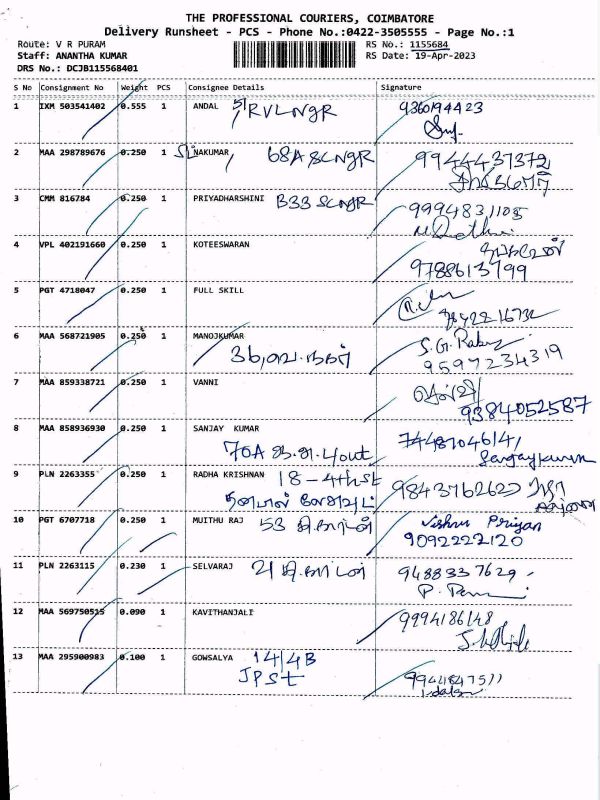 THE PROFESSIONAL COURIERS, COIMBATORE
Delivery Runsheet - PCS - Phone No.:0422-3505555 - Page No.:1
Route: V R PURAM
RS No.: 1155684
Staff: ANANTHA KUMAR
RS Date: 19-Apr-2023
DRS No.: DCJB115568401
S No Consignment No Weight PCS Consignee Details Signature
1 IXM 503541402 0.555 1 ANDAL 51 RVL NGR 9360194423
2 MAA 298789676 0.250 1 NAKUMAR 68A SCNGR 9944437372
3 CMM 816784 0.250 1 PRIYADHARSHINI B33 SCNGR 9994831105
4 VPL 402191660 0.250 1 KOTEESWARAN
9788613799
5 PGT 4718047 0.250 1 FULL SKILL
6 MAA 568721905 0.250 1 MANOJKUMAR
9597234319
7 MAA 859338721 0.250 1 VANNI
9384052587
8 MAA 858936930 0.250 1 SANJAY KUMAR
70A
Sanjaykumar
9 PLN 2263355 0.250 1 RADHA KRISHNAN 18 - 4th St
9843762620
10 PGT 6707718 0.250 1 MUITHU RAJ 53 Vishnu Priyan
9092222120
11 PLN 2263115 0.230 1 SELVARAJ 21 9488337629
12 MAA 569750515 0.090 1 KAVITHANJALI 9994186148
13 MAA 295900983 0.100 1 GOWSALYA 14/4B
JP St